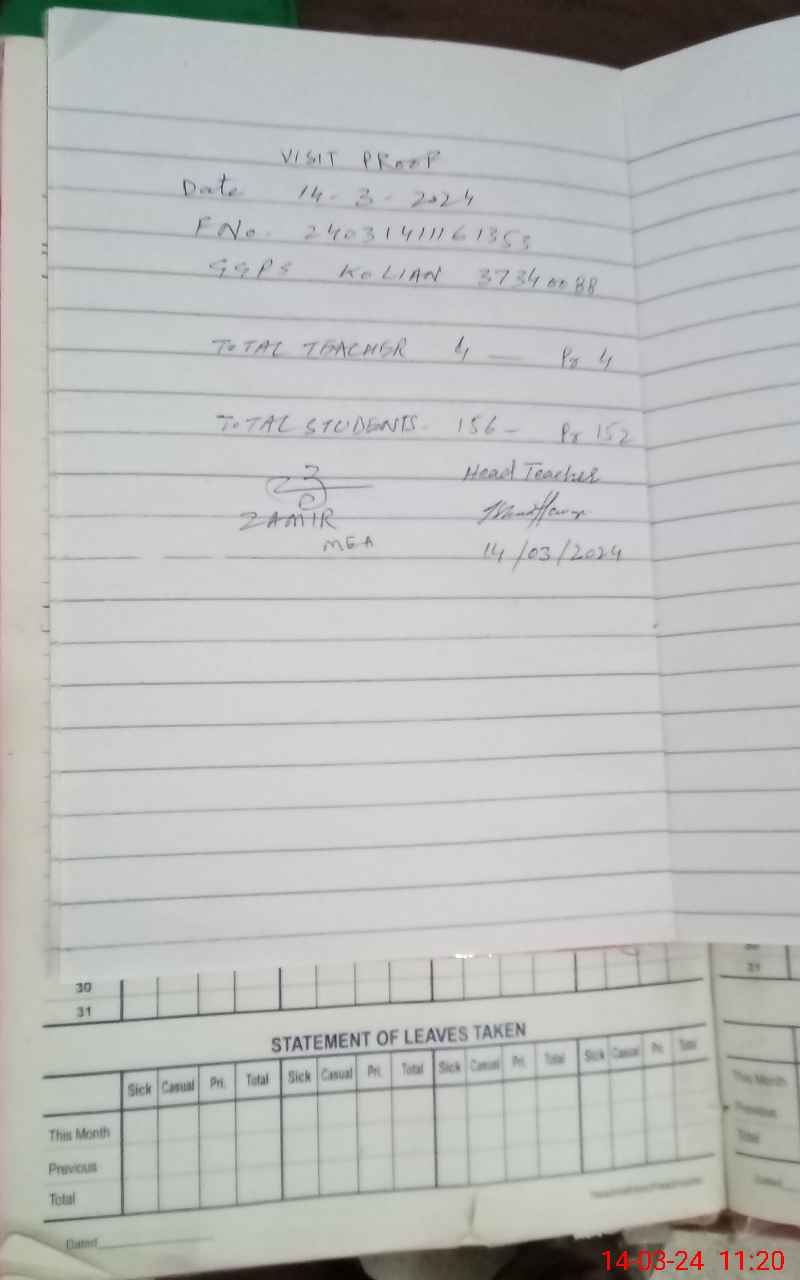 VISIT PROOF
Date 14-3-2024
F No. 24031411161353
GGPS KOLIAN 37340088
TOTAL TEACHER 4 — Pr 4
TOTAL STUDENTS - 156 - Pr 152
Head Teacher
ZAMIR
MEA
14/03/2024
30
31
31
STATEMENT OF LEAVES TAKEN
Sick Casual Pri. Total Sick Casual Pri. Total Sick Casual Pri. Total Sick Casual Pri. Total
This Month
Previous
Total
Dated
This Month
Previous
Total
Dated
14-03-24 11:20